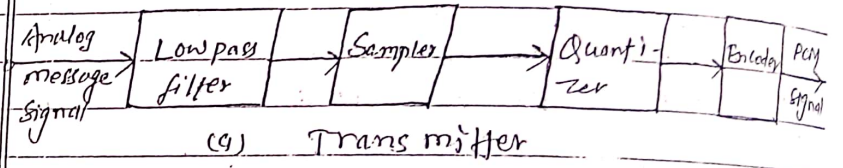 Analog
message
signal
Lowpass
filter
Sampler
Quanti-
zer
Encoder
PCM
signal
(a) Transmitter